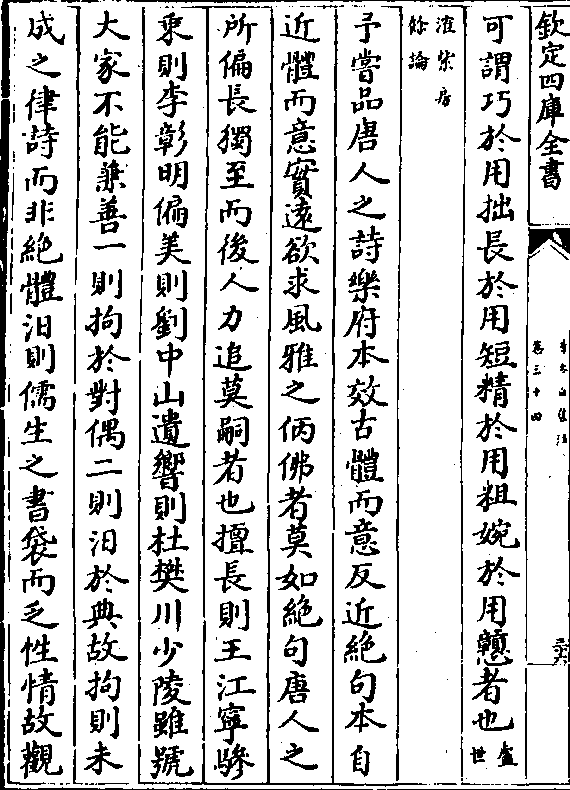 欽定四庫全書
李太白集注
卷三十四
可謂巧於用拙長於用短精於用粗婉於用戇者也盧世
㴶紫房
餘論
予嘗品唐人之詩樂府本效古體而意反近絶句本自
近體而意實遠欲求風雅之㑂佛者莫如絶句唐人之
所偏長獨至而後人力追莫嗣者也擅長則王江寧驂
乘則李彰明偏美則劉中山遺響則杜樊川少陵雖號
大家不能兼善一則拘於對偶二則汨於典故拘則未
成之律詩而非絶體汨則儒生之書袋而乏性情故觀